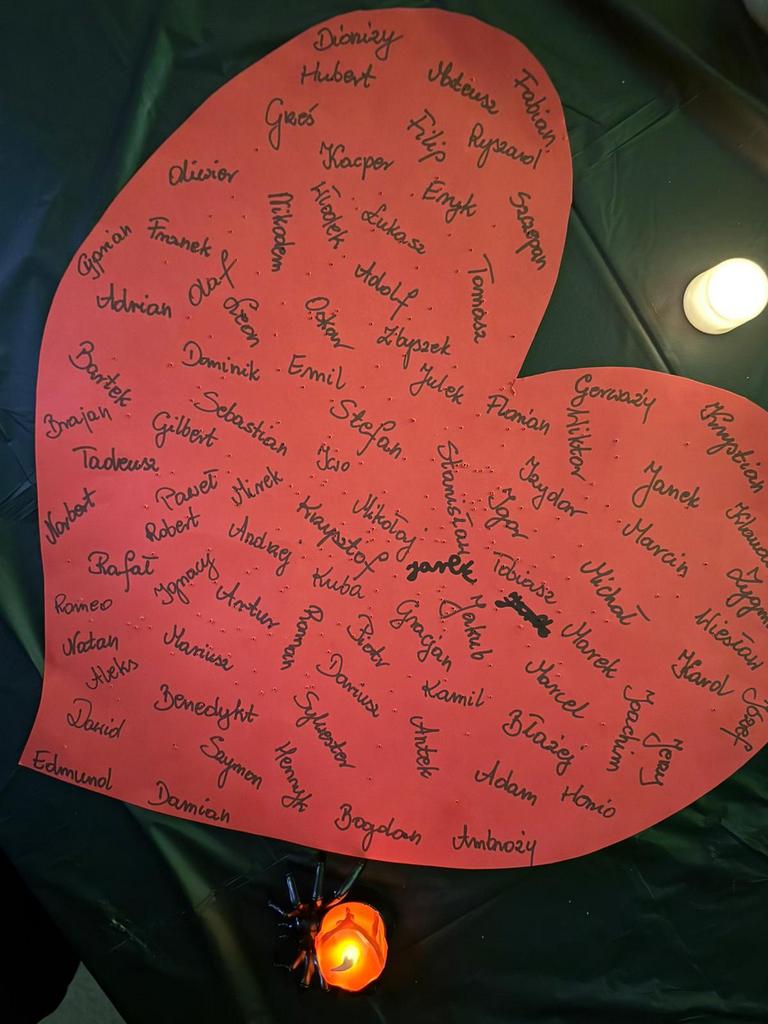 Dionizy
Hubert
Mateusz
Fabian
Grześ
Filip
Ryszard
Kacper
Oliwier
Eryk
Nikodem
Włodek
Łukasz
Szczepan
Cyprian
Franek
Adolf
Tomasz
Olaf
Adrian
Leon
Oskar
Zbyszek
Bartek
Dominik
Emil
Julek
Florian
Gerwazy
Wiktor
Krystian
Brajan
Gilbert
Sebastian
Stefan
Tadeusz
Iwo
Stanisław
Izydor
Janek
Norbert
Paweł
Mirek
Igor
Robert
Andrzej
Krzysztof
Mikołaj
Marcin
Rafał
Ignacy
Kuba
Jarek
Tobiasz
Michał
Romeo
Artur
Gracjan
Jakub
Marek
Wiesław
Natan
Mariusz
Roman
Piotr
Karol
Aleks
Dariusz
Kamil
Marcel
Józef
Dawid
Benedykt
Sylwester
Antek
Błażej
Joachim
Jerzy
Edmund
Szymon
Henryk
Adam
Honio
Damian
Bogdan
Ambroży